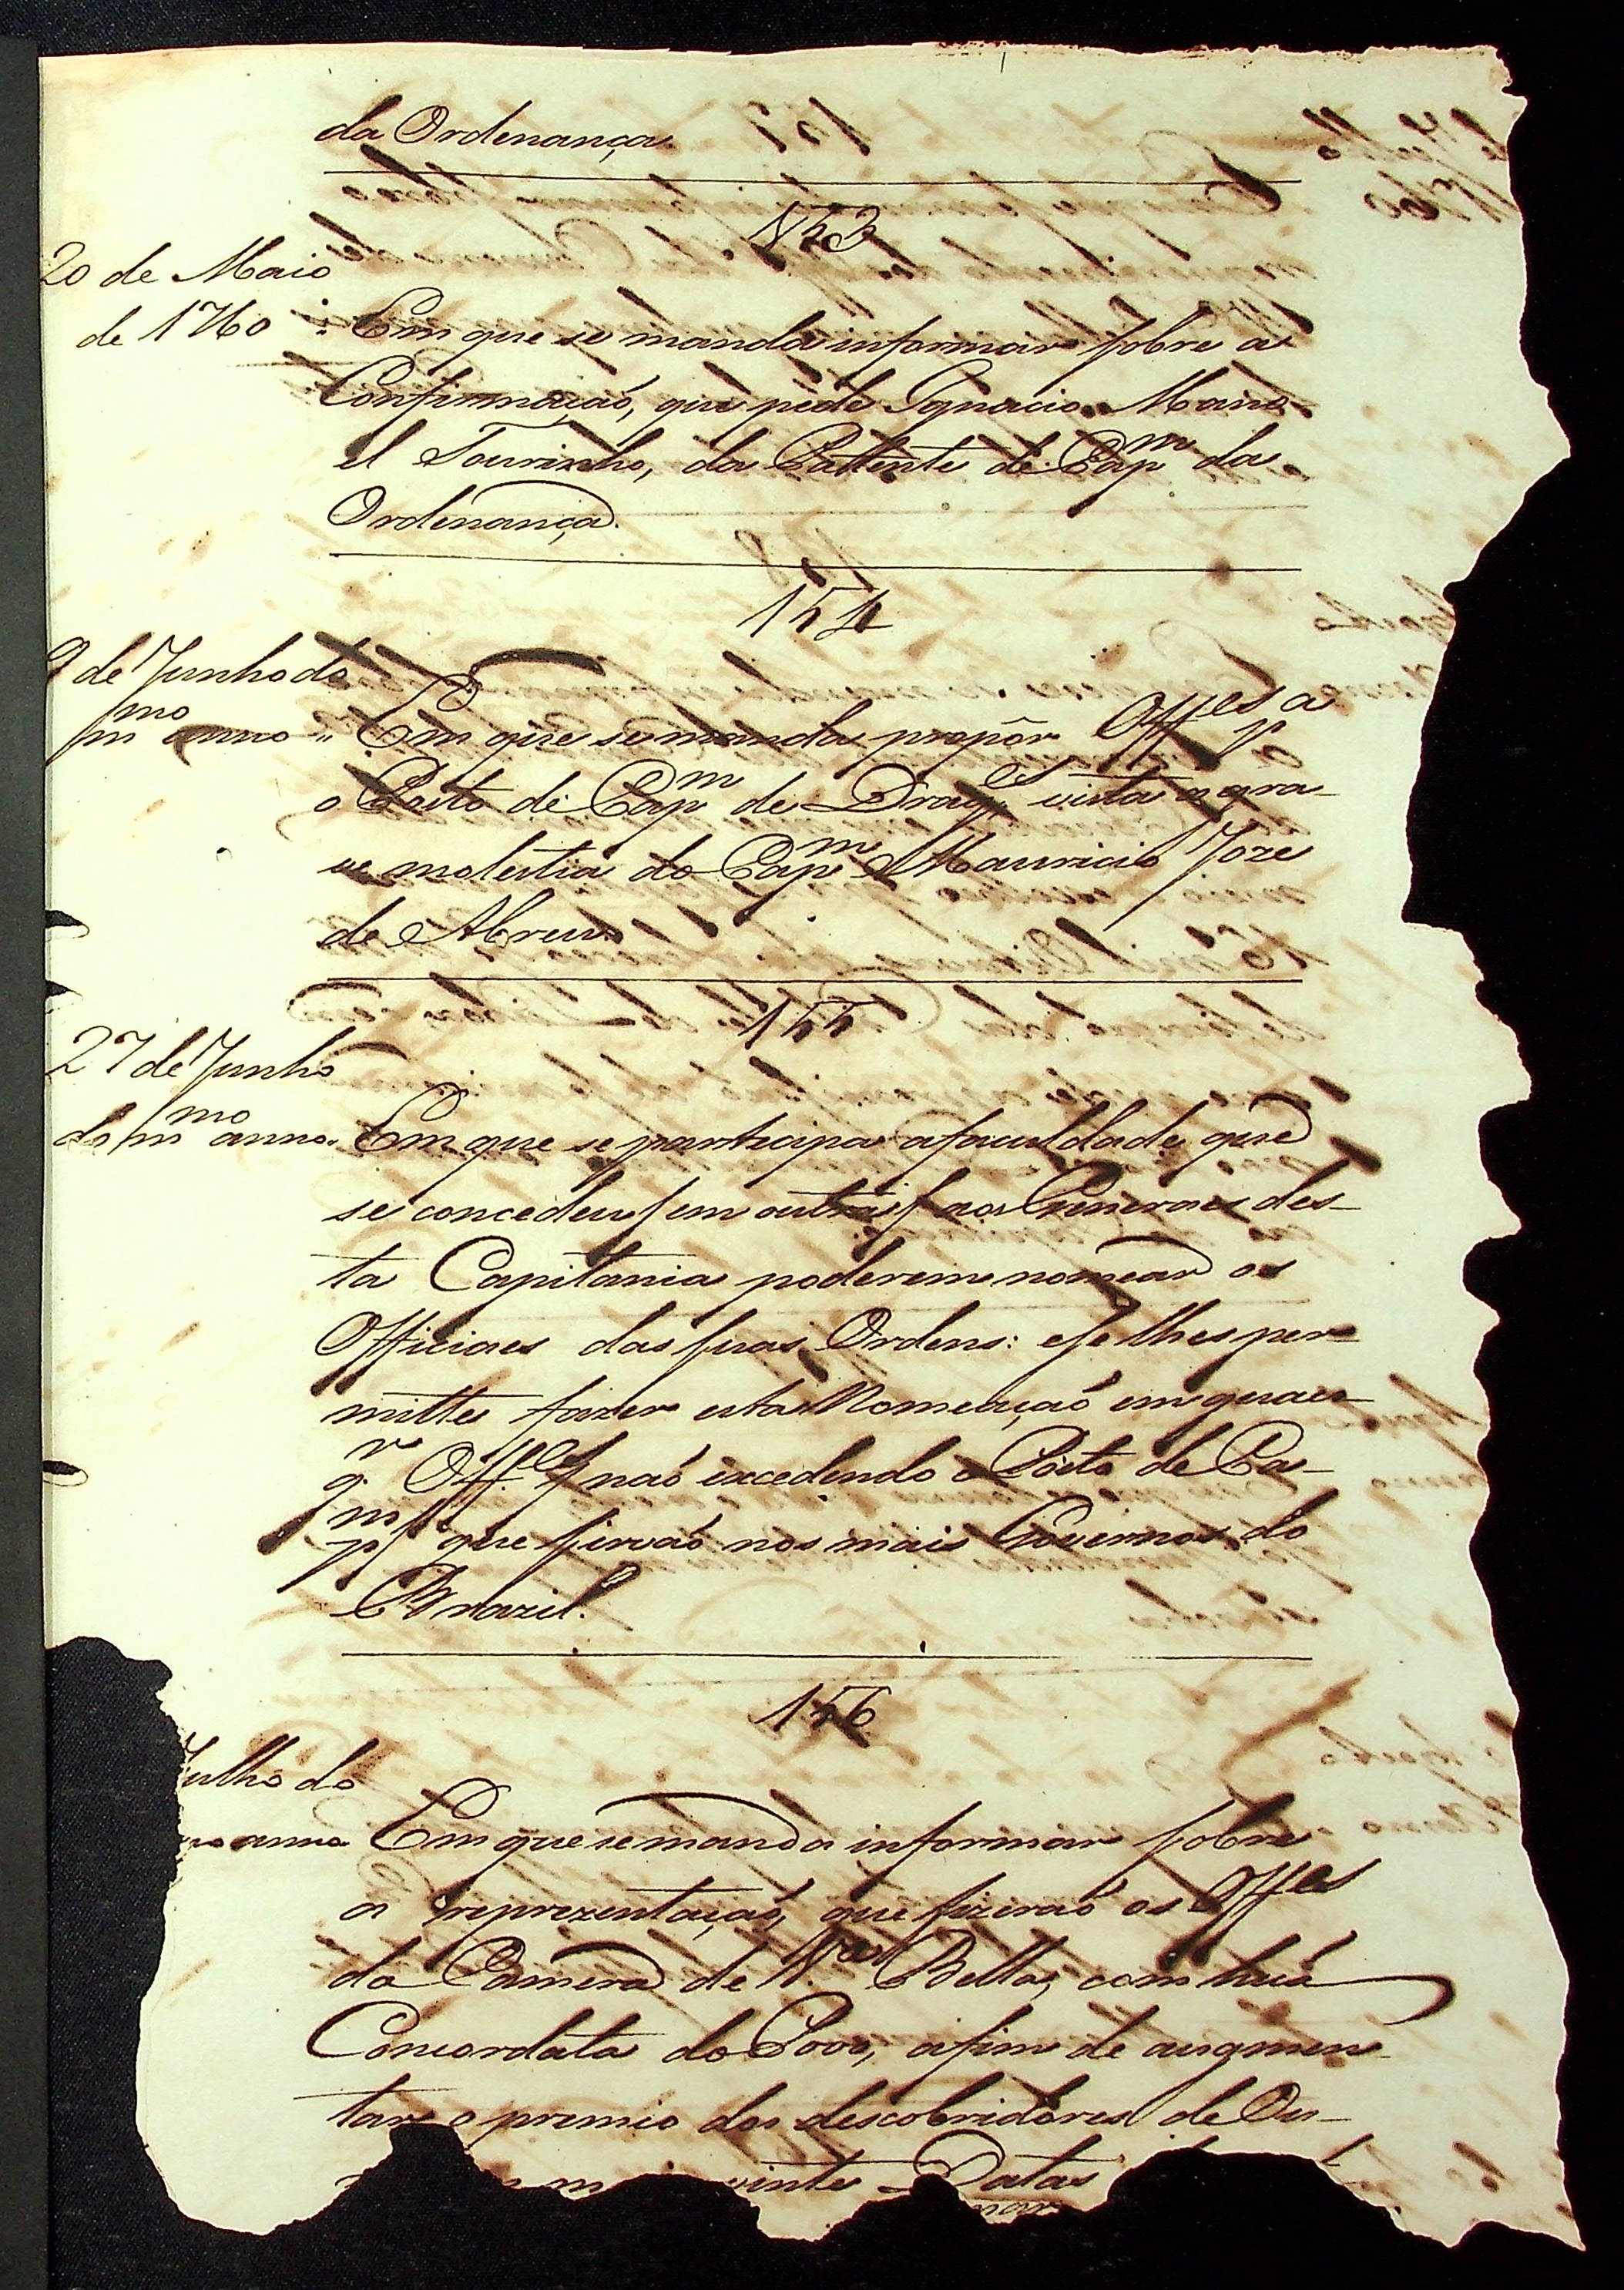 da Ordenança.
153
20 de Maio
de 1760 " Em que se manda informar sobre a
Confirmaçaõ, que pede Ignacio Mano-
el Tourinho, da Pattente de Capm da
Ordenança.
154
9 de Junho do
mmo anno " Em que se manda propôr Offes pa
o Posto de Capm de Drages vista a gra-
ve molestia do Capm Mauricio Joze
de Abreu.
155
27 de Junho
do mmo anno. Em que se participa a faculdade que
se concedeu em outra aos Generaes des-
ta Capitania poderem nomear os
Officiaes das suas Ordens: e se lhes per-
mitte fazer esta Nomeaçaõ em quaes-
qr Offes naõ excedendo o Posto de Ca-
pm que sirvaõ nos mais Governos do
Brazil.
156
Julho do
anno Em que se manda informar sobre
a reprezentaçaõ, que fizeraõ os Offes
da Camera de Va Bella, com huã
Concordata do Povo, a fim de augmen-
tar o premio dos descobridores de Ou-
vinte Datas